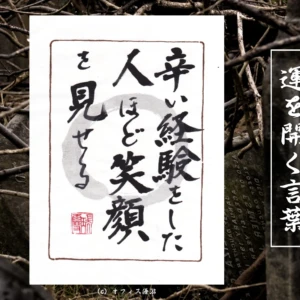 辛い経験をした
人ほど笑顔
を見せる
運を開く言葉
(c) オフィス海潮